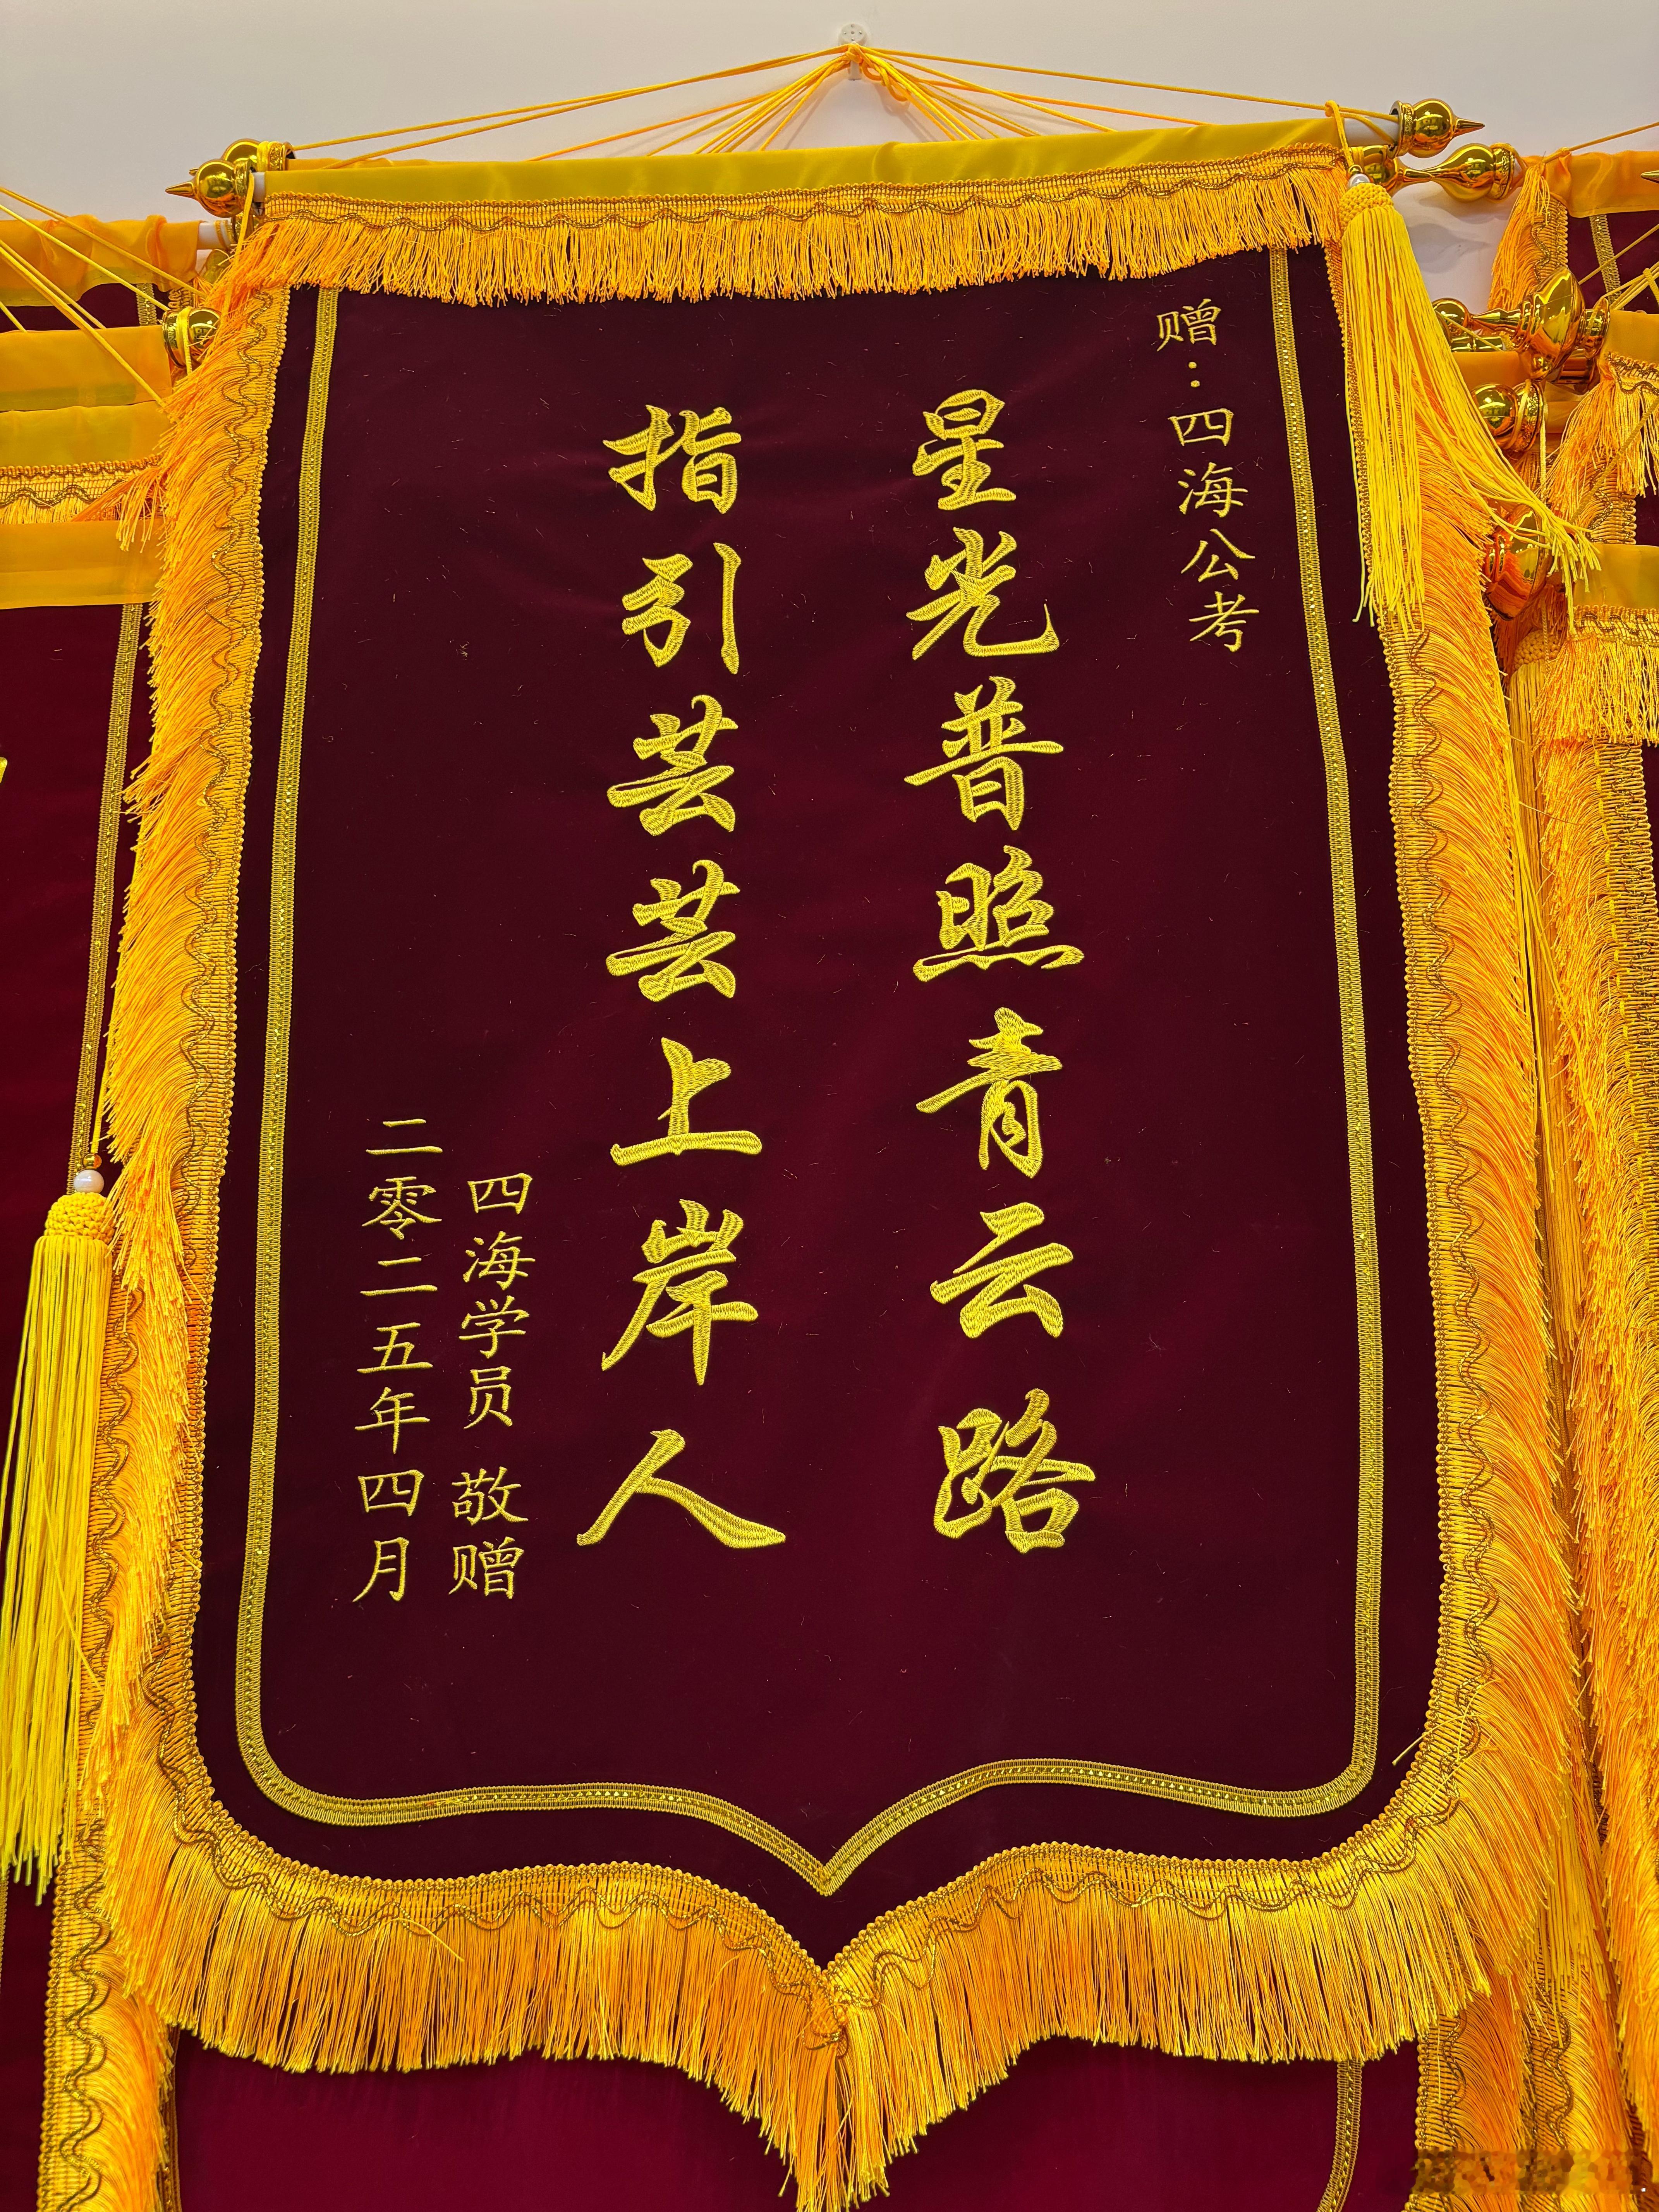 赠：四海公考
星光普照青云路
指引芸芸上岸人
四海学员 敬赠
二零二五年四月